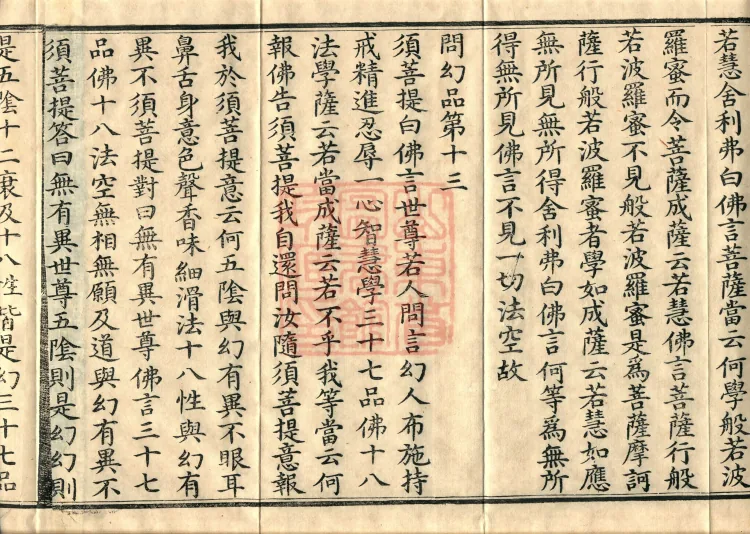 若慧舍利弗白佛言菩薩當云何學般若波
羅蜜而令菩薩成薩云若慧佛言菩薩行般
若波羅蜜不見般若波羅蜜是為菩薩摩訶
薩行般若波羅蜜者學如成薩云若慧如應
無所見無所得舍利弗白佛言何等為無所
得無所見佛言不見一切法空故
問幻品第十三
須菩提白佛言世尊若人問言幻人布施持
戒精進忍辱一心智慧學三十七品佛十八
法學薩云若當成薩云若不乎我等當云何
報佛告須菩提我自還問汝隨須菩提意報
我於須菩提意云何五陰與幻有異不眼耳
鼻舌身意色聲香味細滑法十八性與幻有
異不須菩提對曰無有異世尊佛言三十七
品佛十八法空無相無願及道與幻有異不
須菩提答曰無有異世尊五陰則是幻幻則
是五陰十二衰及十八性皆是幻三十七品